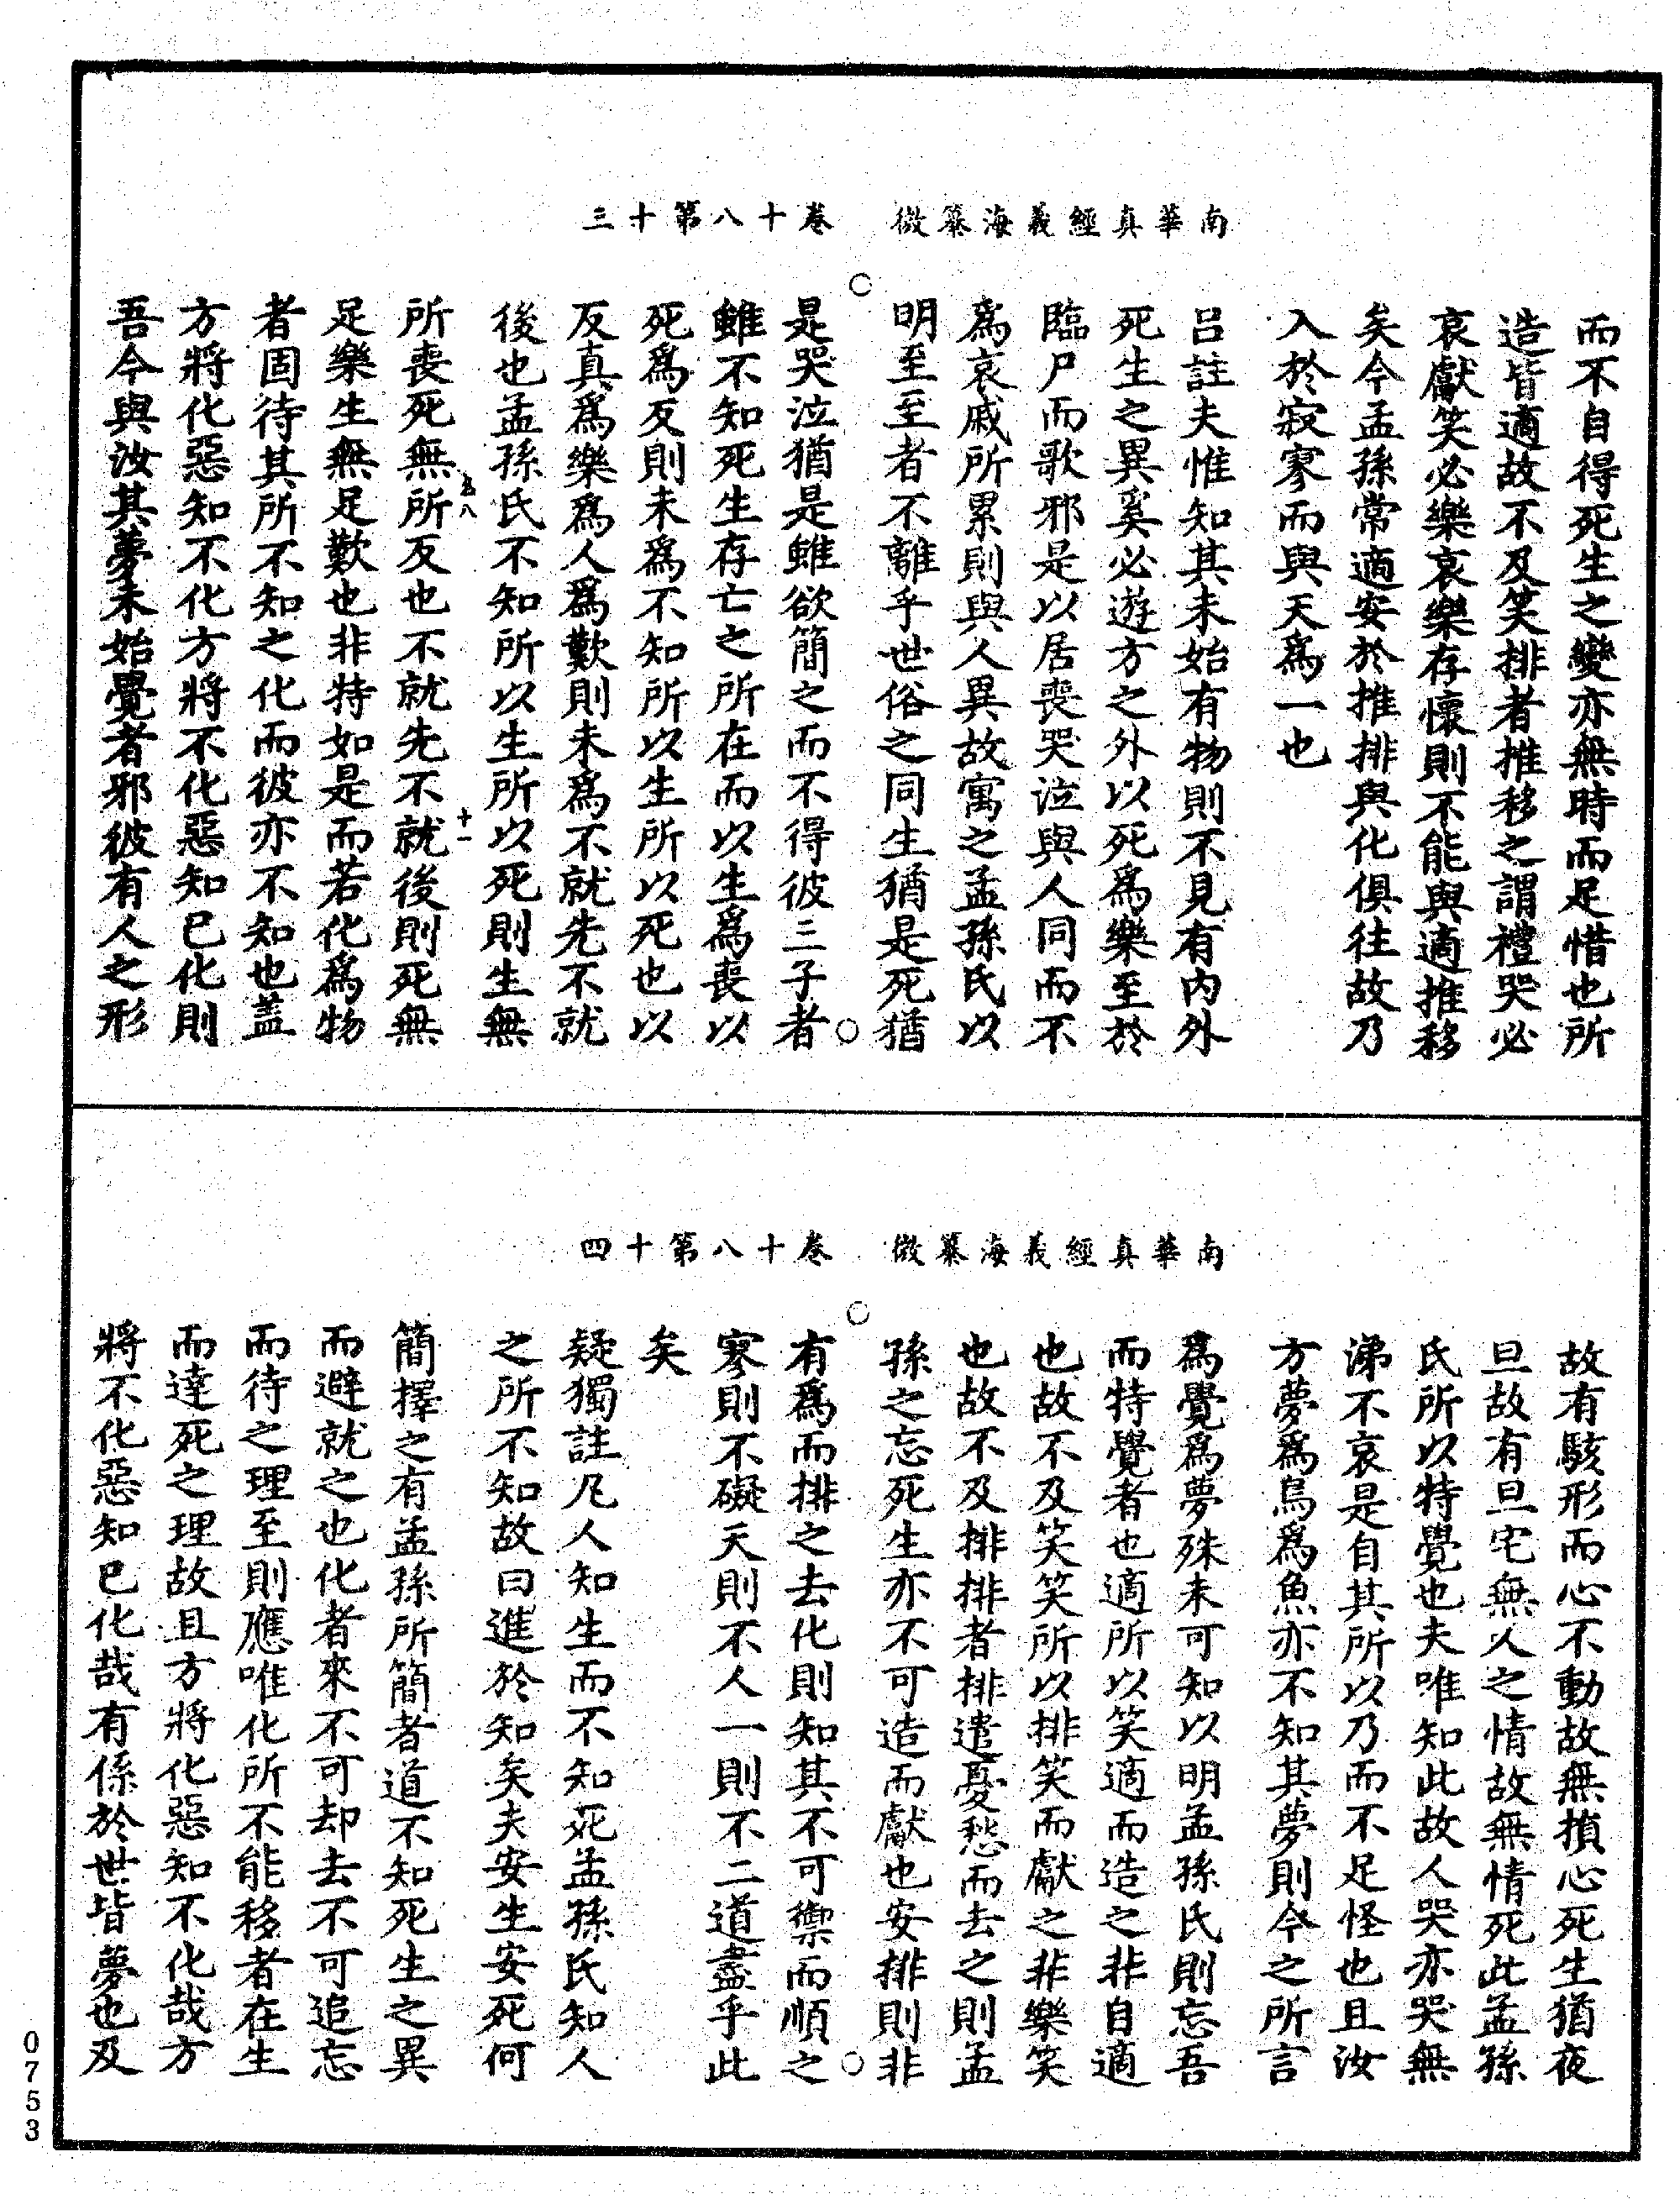 南華真經義海纂微　卷十八第十三
而不自得死生之變亦無時而足惜也所
造皆適故不及笑排者推移之謂禮哭必
哀獻笑必樂哀樂存懷則不能與適推移
矣今孟孫常適安於推排與化俱往故乃
入於寂寥而與天爲一也
呂註夫惟知其未始有物則不見有內外
死生之異奚必遊方之外以死爲樂至於
臨尸而歌邪是以居喪哭泣與人同而不
爲哀戚所累則與人異故寓之孟孫氏以
明至至者不離乎世俗之同生猶是死猶
是哭泣猶是雖欲簡之而不得彼三子者
雖不知死生存亡之所在而以生爲喪以
死爲反則未爲不知所以生所以死也以
反真爲樂爲人爲歎則未爲不就先不就
後也孟孫氏不知所以生所以死則生無
所喪死無所反也不就先不就後則死無
足樂生無足歎也非特如是而若化爲物
者固待其所不知之化而彼亦不知也蓋
方將化惡知不化方將不化惡知已化則
吾今與汝其夢未始覺者邪彼有人之形
十一
南華真經義海纂微　卷十八第十四
故有駭形而心不動故無損心死生猶夜
旦故有旦宅無人之情故無情死此孟孫
氏所以特覺也夫唯知此故人哭亦哭無
涕不哀是自其所以乃而不足怪也且汝
方夢爲鳥爲魚亦不知其夢則今之所言
爲覺爲夢殊未可知以明孟孫氏則忘吾
而特覺者也適所以笑適而造之非自適
也故不及笑笑所以排笑而獻之非樂笑
也故不及排排者排遣憂愁而去之則孟
孫之忘死生亦不可造而獻也安排則非
有爲而排之去化則知其不可禦而順之
寥則不礙天則不人一則不二道盡乎此
矣
疑獨註凡人知生而不知死孟孫氏知人
之所不知故曰進於知矣夫安生安死何
簡擇之有孟孫所簡者道不知死生之異
而避就之也化者來不可却去不可追忘
而待之理至則應唯化所不能移者在生
而達死之理故且方將化惡知不化哉方
將不化惡知已化哉有係於世皆夢也及
0753